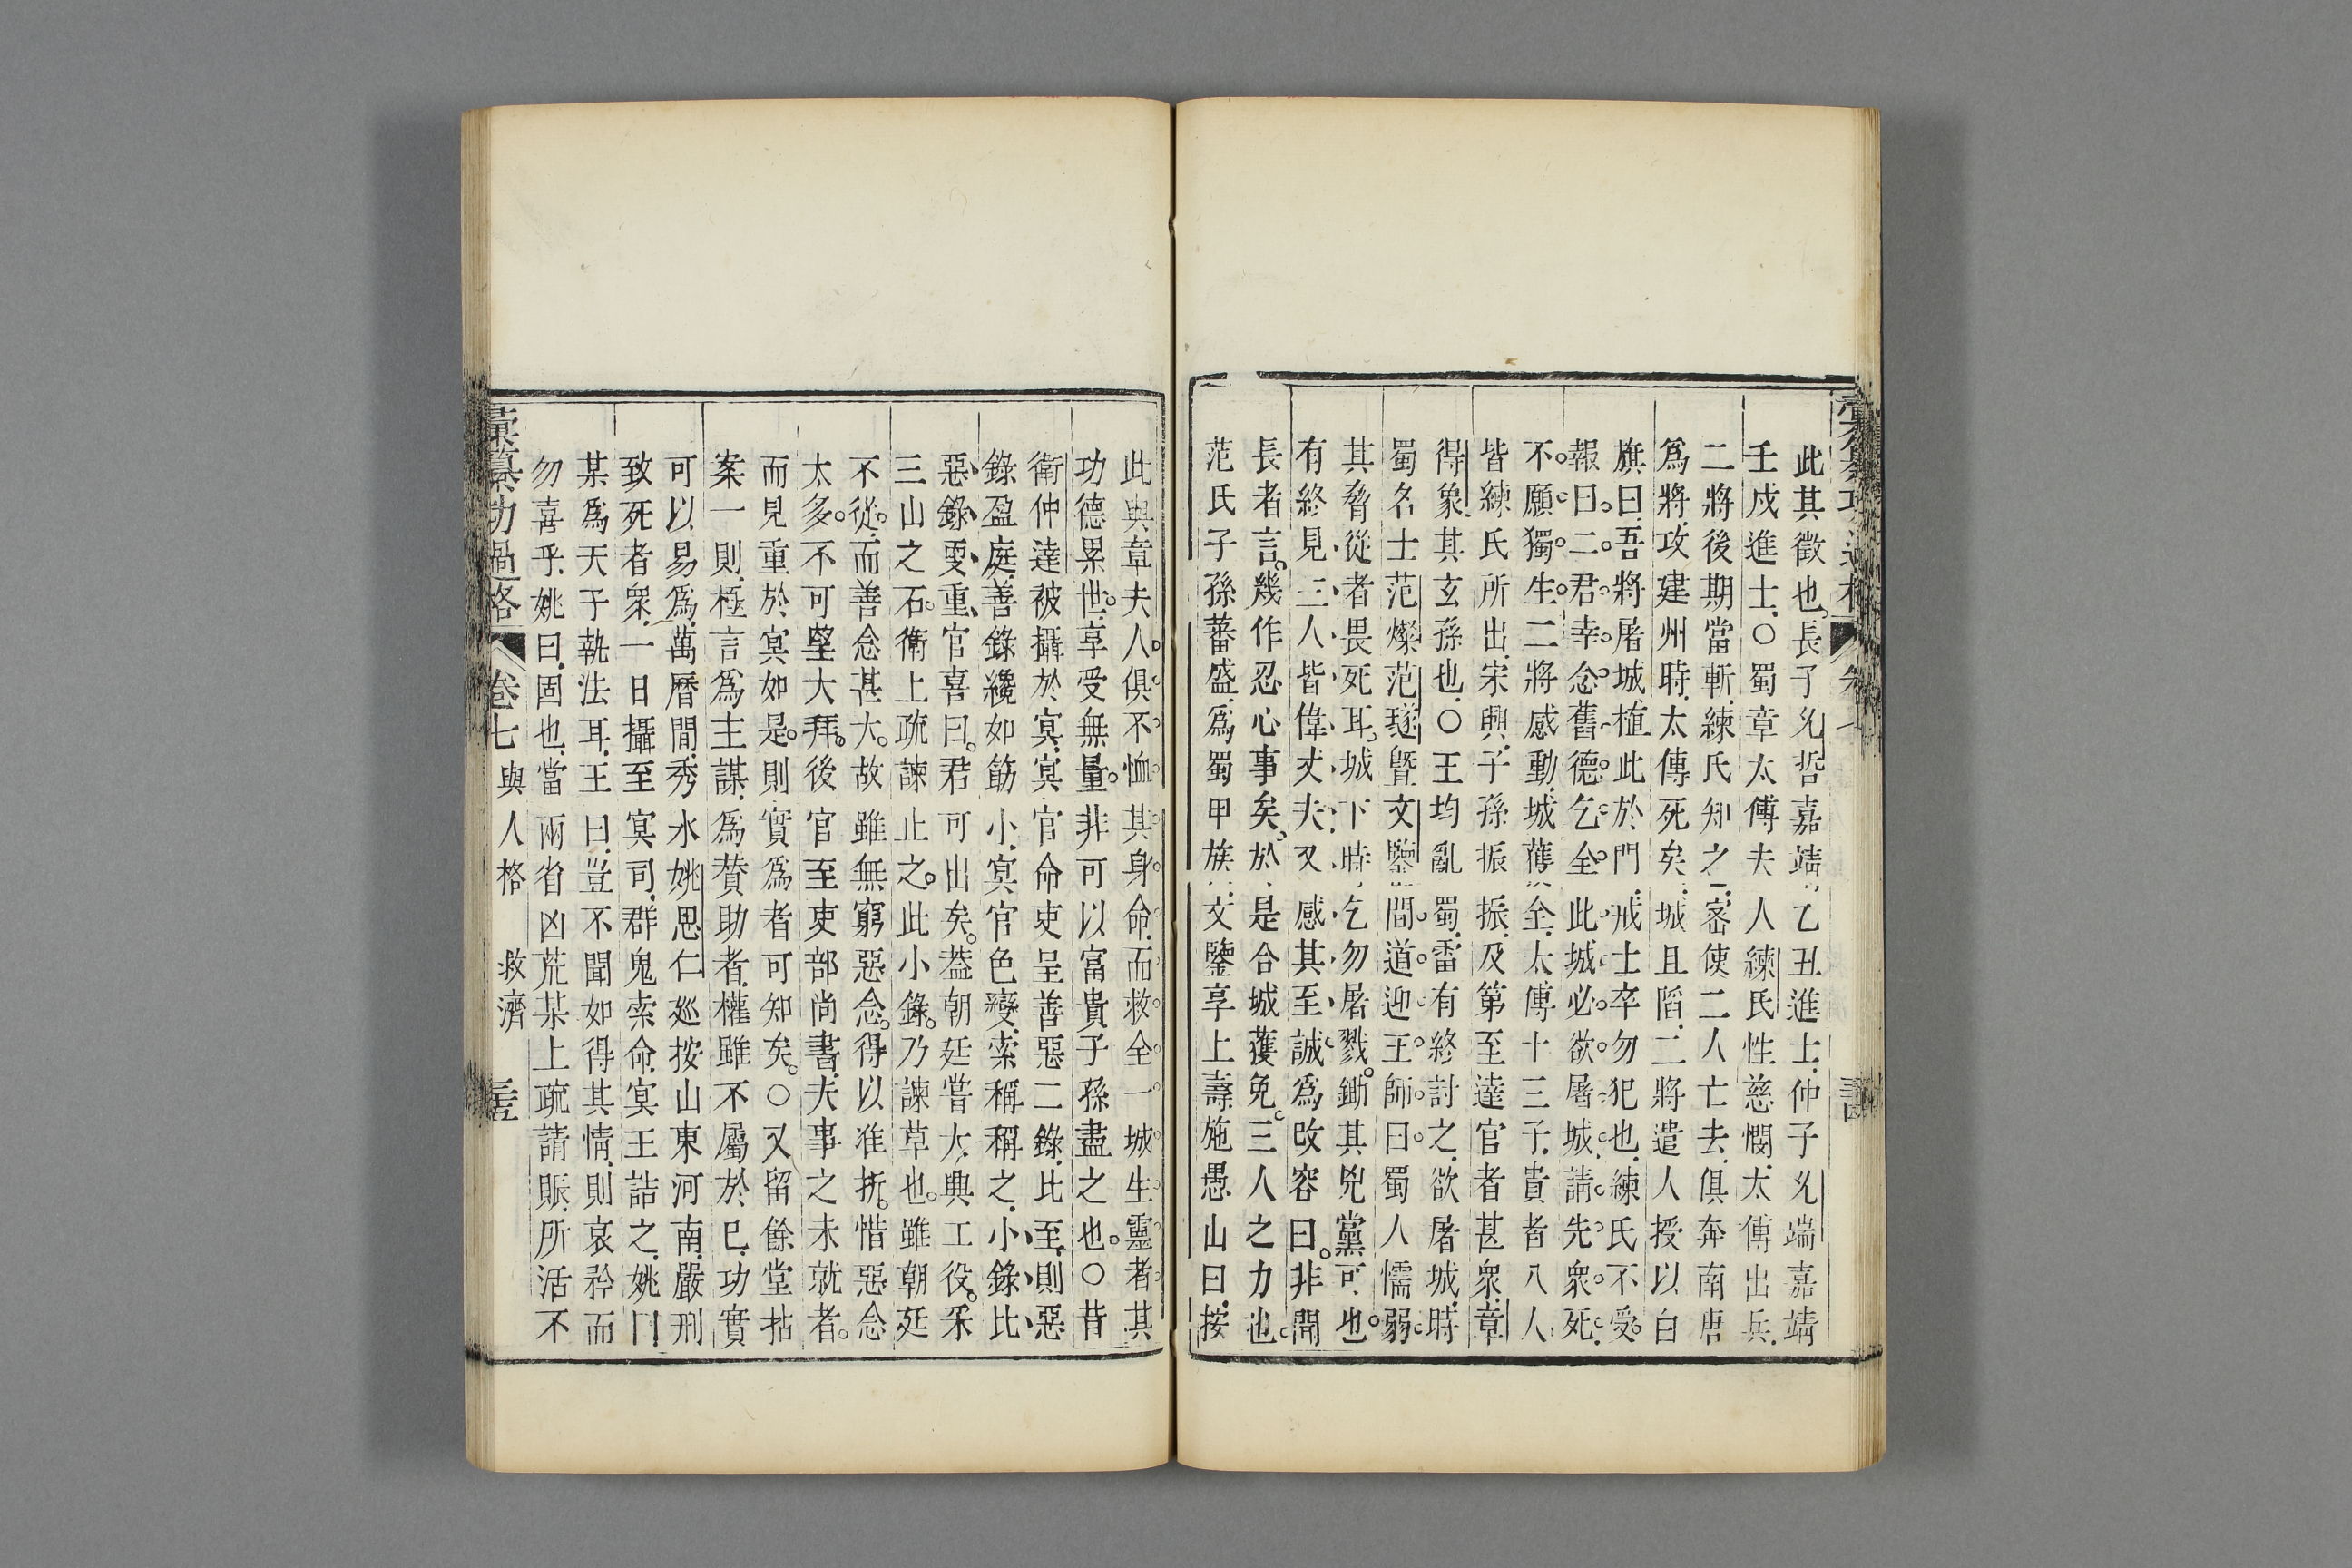 此其徵也長子允哲嘉靖乙丑進士仲子允端嘉靖
壬戌進士○蜀章太傅夫人練氏性慈憫太傅出兵
二將後期當斬練氏知之密使二人亡去俱奔南唐
爲將攻建州時太傅死矣城且陷二將遣人授以白
旗曰吾將屠城植此於門戒士卒勿犯也練氏不受
報曰二君幸念舊德乞全此城必欲屠城請先衆死
不願獨生二將感動城獲全太傅十三子貴者八人
皆練氏所出宋興子孫振振及第至達官者甚衆章
得象其玄孫也○王均亂蜀雷有終討之欲屠城時
蜀名士范燦范璲曁文鑒間道迎王師曰蜀人懦弱
其脅從者畏死耳城下時乞勿屠戮鋤其兇黨可也
有終見三人皆偉丈夫又感其至誠爲改容曰非聞
長者言幾作忍心事矣於是合城獲免三人之力也
范氏子孫蕃盛爲蜀甲族文鑒享上壽施愚山曰按
此與章夫人俱不恤其身命而救全一城生靈者其
功德累世享受無量非可以富貴子孫盡之也○昔
衛仲達被攝於冥冥官命吏呈善惡二錄比至則惡
錄盈庭善錄纔如筯小冥官色變索稱稱之小錄比
惡錄更重官喜曰君可出矣葢朝廷嘗大典工役釆
三山之石衛上疏諫止之此小錄乃諫草也雖朝廷
不從而善念甚大故雖無窮惡念得以准折惜惡念
太多不可望大拜後官至吏部尚書夫事之未就者
而見重於冥如是則實爲者可知矣○又留餘堂拈
案一則極言爲主謀爲贊助者權雖不屬於巳功實
可以易爲萬曆間秀水姚思仁廵按山東河南嚴刑
致死者衆一日攝至冥司群鬼索命冥王詰之姚曰
某爲天子執法耳王曰豈不聞如得其情則哀矜而
勿喜乎姚曰固也當兩省凶荒某上疏請賑所活不
彙纂功過格 卷七與人格 救濟